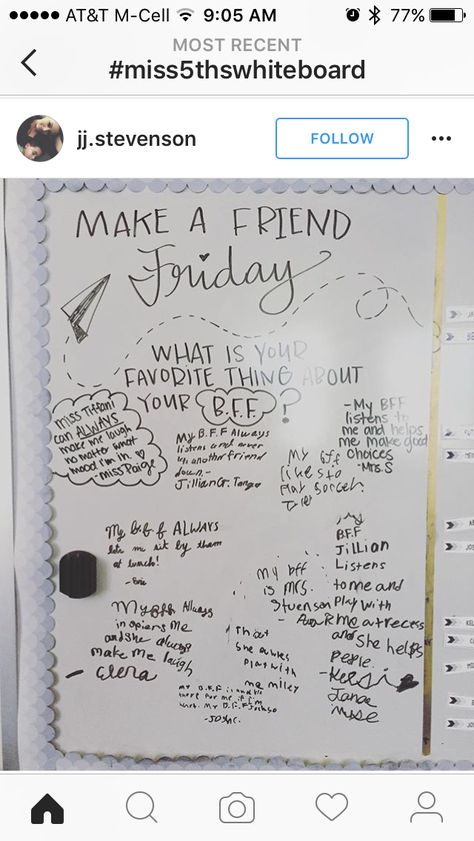 AT&T M-Cell 9:05 AM 77%
MOST RECENT
#miss5thswhiteboard
jj.stevenson
FOLLOW
MAKE A FRIEND
Friday
WHAT IS YOUR
FAVORITE THING ABOUT
YOUR B.F.F.?
Miss Tiffani
can ALWAYS
make me laugh
no matter what
mood I'm in.
-Miss Paige
My B.F.F Always
listens and never
another friend
down-
Jillian Gr.
- My BFF
listens to
me and helps
me make good
choices
-Mrs.S
My bff
likes to
Play Soccer.
My b.f.f ALWAYS
lets me sit by them
at lunch!
My
BFF
Jillian
Listens
to me and
Play with
me at recess
and she helps
Peple.
-Kelsie
Jana
My bff
is MRS.
Stuenson
My bff Always
inspiers me
and she always
make me laugh
- Elena
That
she
Play with
me miley
My B.F.F is
there for me if I'm
-Josh C.